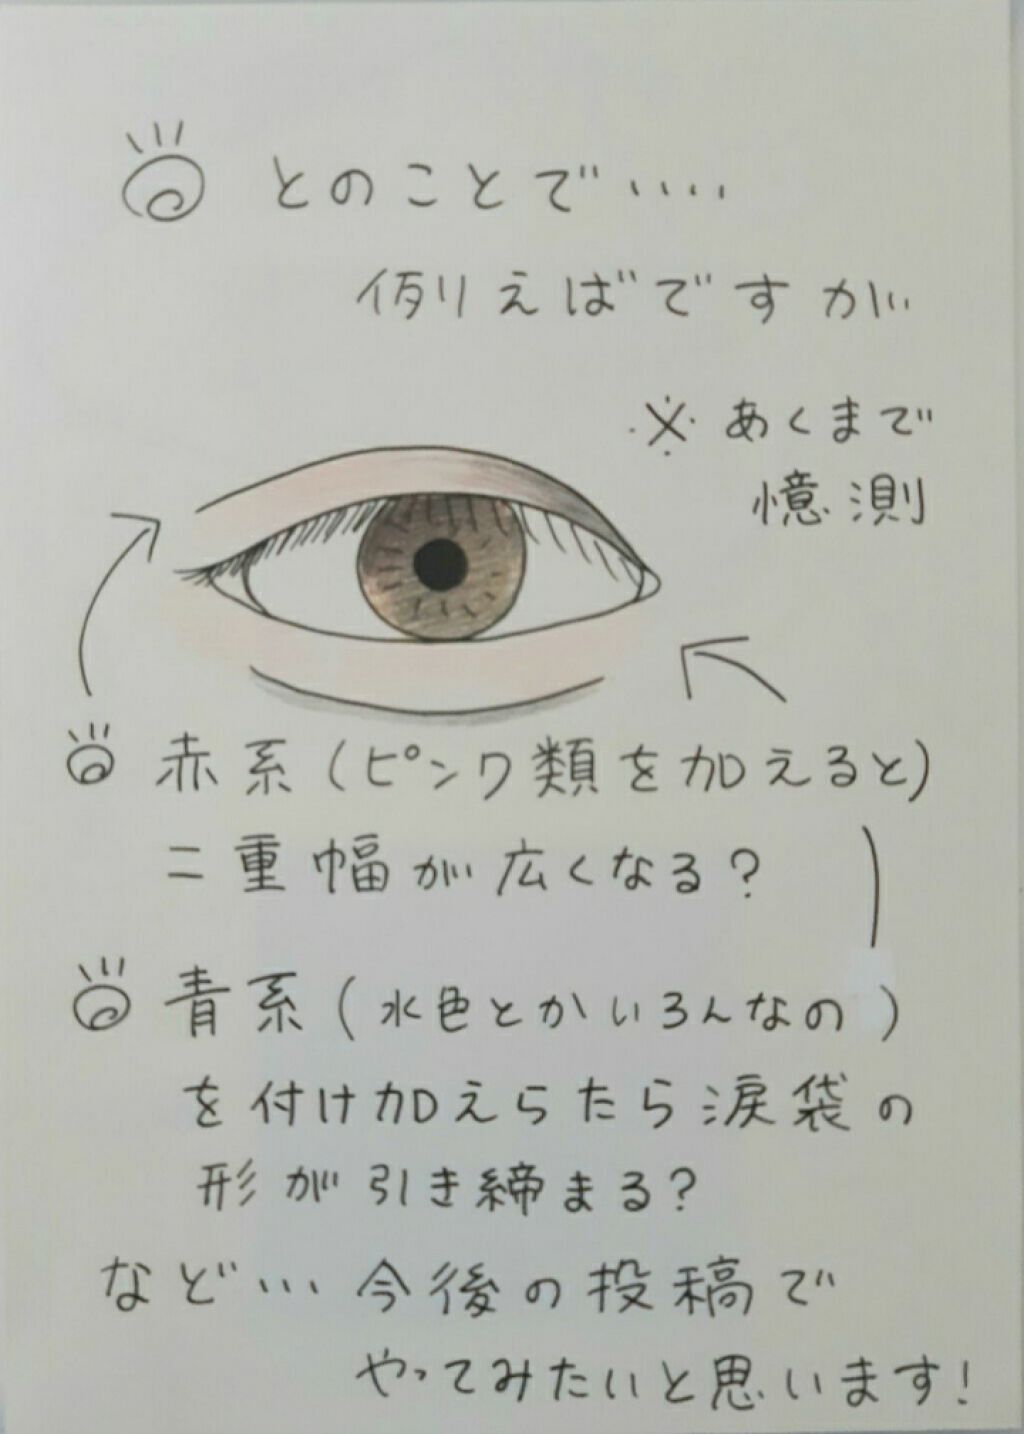 とのことで‥‥
例えばですが‥
※あくまで
憶測
赤系(ピンク類を加えると)
二重幅が広くなる?
青系(水色とかいろんなの)
を付け加えらたら涙袋の
形が引き締まる?
など…今後の投稿で
やってみたいと思います!